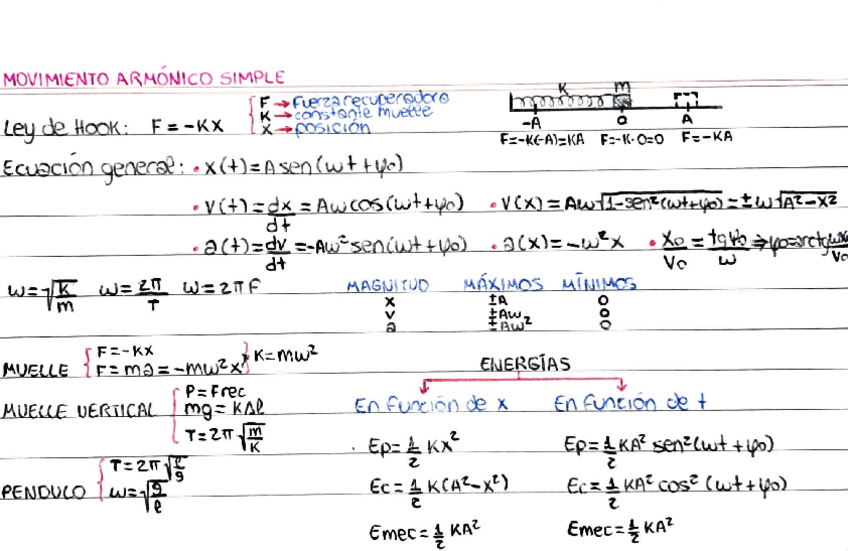 MOVIMIENTO ARMÓNICO SIMPLE
Ley de HOOK: F = -KX
F → Fuerza recuperadora
K → constante muelle
X → posición
K m
-A 0 A
F=-K(-A)=KA F=-K·0=0 F=-KA
Ecuación general: • x(t) = A sen(ωt + φ0)
• v(t) = dx/dt = Aω cos(ωt + φ0) • v(x) = Aω√(1-sen²(ωt+φ0)) = ±ω√(A²-X²)
• a(t) = dv/dt = -Aω² sen(ωt + φ0) • a(x) = -ω²x • x0/v0 = tgφ0/ω ⇒ φ0=arctg ωx0/v0
ω = √(K/m) ω = 2π/T ω = 2πF
MAGNITUD MÁXIMOS MÍNIMOS
x ±A 0
v ±Aω 0
a ±Aω² 0
MUELLE { F = -KX
F = ma = -mω²x } K = mω²
MUELLE VERTICAL { P = Frec
mg = KΔl
T = 2π√(m/K)
PENDULO { T = 2π√(l/g)
ω = √(g/l)
ENERGÍAS
En función de x En función de t
Ep = 1/2 KX² Ep = 1/2 KA² sen²(ωt + φ0)
Ec = 1/2 K(A²-X²) Ec = 1/2 KA² cos²(ωt + φ0)
Emec = 1/2 KA² Emec = 1/2 KA²